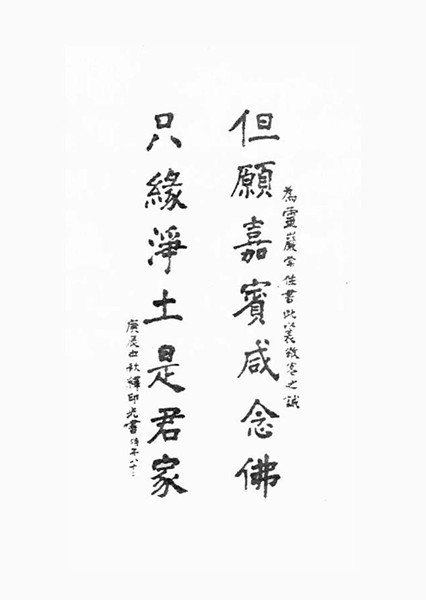 為靈巖常住書此以表致客之誠
但願嘉賓咸念佛
只緣淨土是君家
庚辰中秋釋印光書時年八十